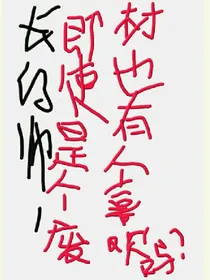 长的帅，
即使是个废
材也有人喜欢吗？